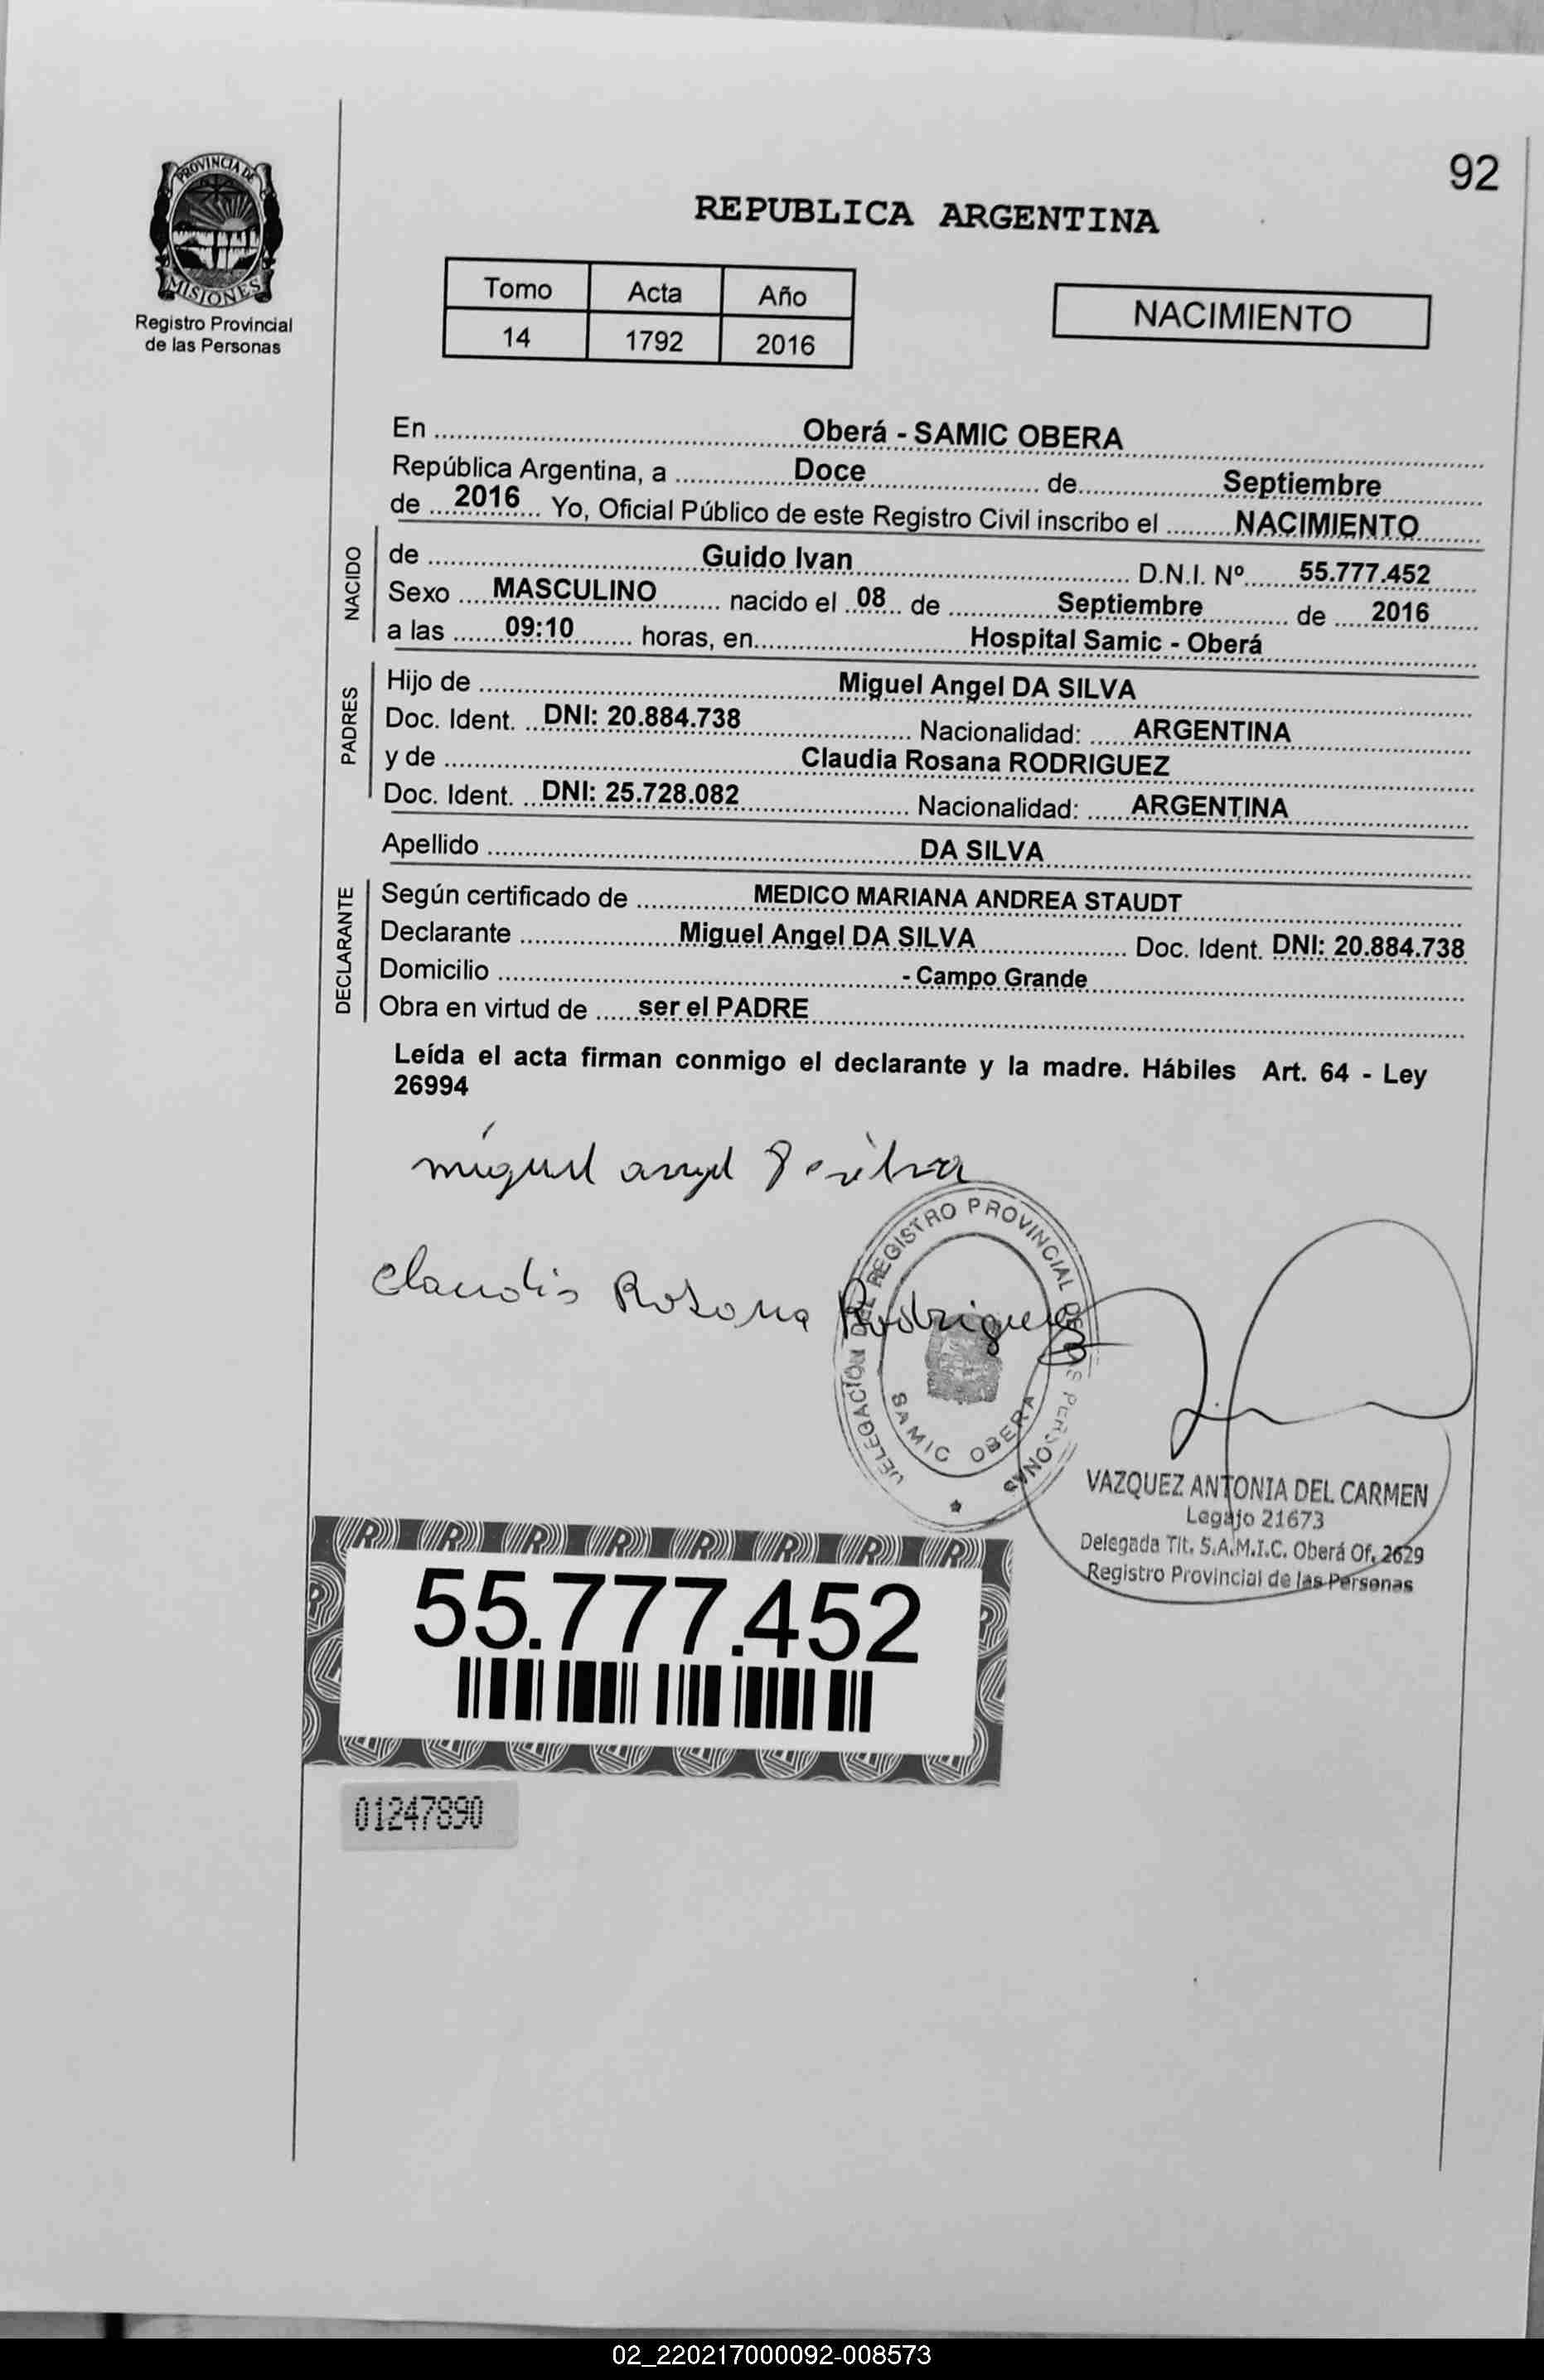 92
PROVINCIA DE
MISIONES
Registro Provincial
de las Personas
REPUBLICA ARGENTINA
Tomo Acta Año
14 1792 2016
NACIMIENTO
En Oberá - SAMIC OBERA
República Argentina, a Doce de Septiembre
de 2016 Yo, Oficial Público de este Registro Civil inscribo el NACIMIENTO
NACIDO
de Guido Ivan D.N.I. Nº 55.777.452
Sexo MASCULINO nacido el 08 de Septiembre de 2016
a las 09:10 horas, en Hospital Samic - Oberá
PADRES
Hijo de Miguel Angel DA SILVA
Doc. Ident. DNI: 20.884.738 Nacionalidad: ARGENTINA
y de Claudia Rosana RODRIGUEZ
Doc. Ident. DNI: 25.728.082 Nacionalidad: ARGENTINA
Apellido DA SILVA
DECLARANTE
Según certificado de MEDICO MARIANA ANDREA STAUDT
Declarante Miguel Angel DA SILVA Doc. Ident. DNI: 20.884.738
Domicilio - Campo Grande
Obra en virtud de ser el PADRE
Leída el acta firman conmigo el declarante y la madre. Hábiles Art. 64 - Ley
26994
miguel angel silva
Claudia Rosana Rodriguez
DELEGACIÓN DEL REGISTRO PROVINCIAL DE LAS PERSONAS
SAMIC OBERA
VAZQUEZ ANTONIA DEL CARMEN
Legajo 21673
Delegada Tit. S.A.M.I.C. Oberá Of. 2629
Registro Provincial de las Personas
55.777.452
01247890
02_220217000092-008573